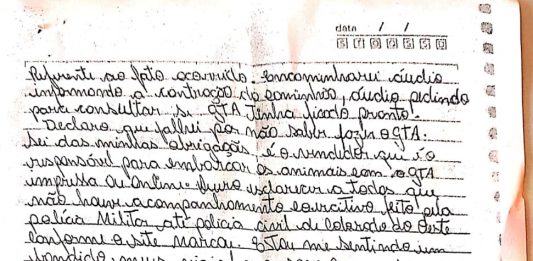 data / /
S T Q Q S S D
Referente ao fato ocorrido. Encaminharei áudio
informando a contração do caminhão, áudio pedindo
para consultar se GTA tinha ficado pronto.
Declaro que falhei por não saber fazer o GTA.
Sei das minhas obrigações, é o vendedor que é o
responsável para embarcar os animais com o GTA
impressa ou Online. Quero esclarecer a todos que
não houve acompanhamento coercitivo feito pela
polícia Militar até polícia civil de Colorado do Oeste
conforme o site marcou. Estou me sentindo um
bandido, meus